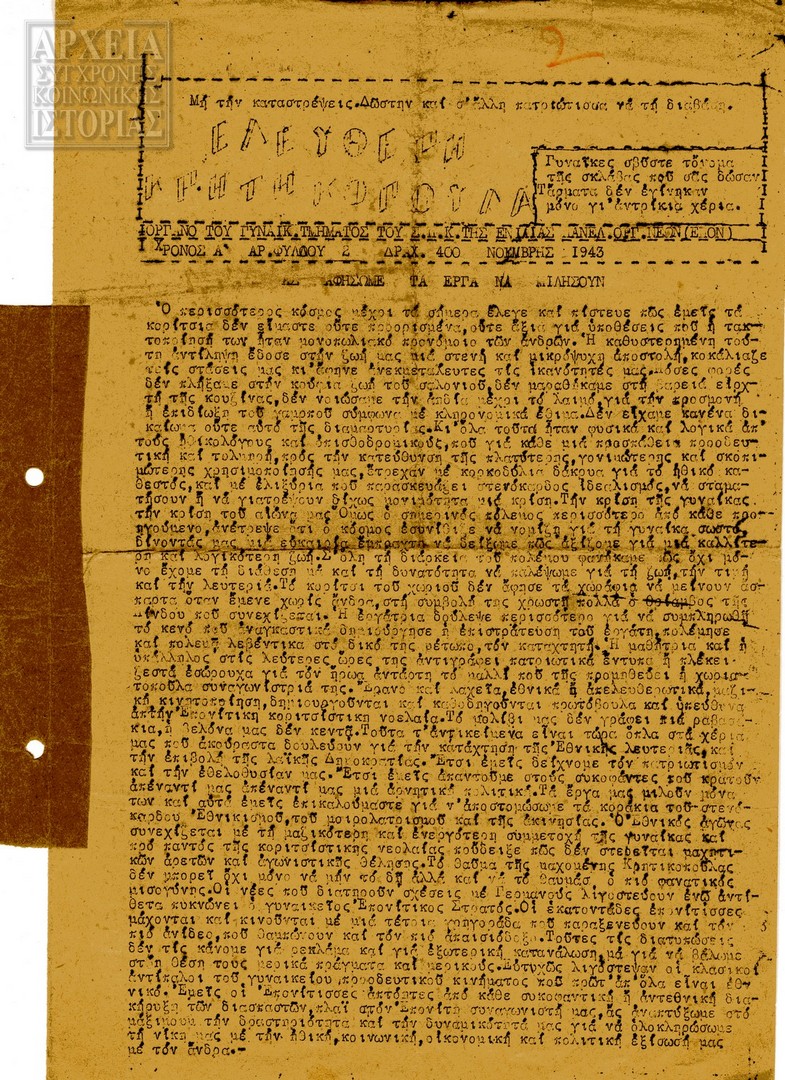 ΑΡΧΕΙΑ
ΣΥΓΧΡΟΝΗΣ
ΚΟΙΝΩΝΙΚΗΣ
ΙΣΤΟΡΙΑΣ
2
Μή τήν καταστρέψεις.Δώστην καί σ'άλλη πατριώτισσα νά τή διαβάση.
ΕΛΕΥΘΕΡΗ
ΚΡΗΤΗΚΟΠΟΥΛΑ
Γυναῖκες σβῦστε τὄνομα
τῆς σκλάβας πού σᾶς δώσαν
Τἄρματα δέν ἐγίνηκαν
μόνο γι'ἀντρίκια χέρια.
ΟΡΓΑΝΟ ΤΟΥ ΓΥΝΑΙΚ.ΤΜΗΜΑΤΟΣ ΤΟΥ Σ.Π.Κ ΤΗΣ ΕΝΙΑΙΑΣ ΠΑΝΕΛ.ΟΡΓ.ΝΕΩΝ(ΕΠΟΝ)
ΧΡΟΝΟΣ Α' ΑΡ.ΦΥΛΛΟΥ 2 ΔΡΑΧ. 400 ΝΟΕΜΒΡΗΣ 1943
ΑΣ ΑΦΗΣΟΜΕ ΤΑ ΕΡΓΑ ΝΑ ΜΙΛΗΣΟΥΝ
Ὁ περισσότερος κόσμος μέχρι τά σήμερα ἔλεγε καί πίστευε πώς ἐμεῖς τά
κορίτσια δέν εἴμαστε οὔτε προορισμένα,οὔτε ἄξια γιά ὑποθέσεις πού ἡ τακ-
τοποίησή των ἦταν μονοπωλιακό προνόμιο τῶν ἀνδρῶν.Ἡ καθυστερημένη τού-
τη ἀντίληψη ἔδοσε στήν ζωή μας μιά στενή καί μικρόψυχη ἀποστολή,κοκάλιαζε
τίς στάσεις μας κι'ἄφηνε ἀνεκμετάλευτες τίς ἱκανότητές μας.Πόσες φορές
δέν πλήξαμε στήν κούφια ζωή τοῦ σαλονιοῦ,δέν μαραθήκαμε στή βαρειά εἱρχ-
τή τῆς κουζίνας,δέν νοιώσαμε τήν ἀηδία μέχρι τό λαιμό,γιά τήν προσμονή
ἤ ἐπιδίωξη τοῦ γαμπροῦ σύμφωνα μέ κληρονομικά ἔθιμα.Δέν εἴχαμε κανένα δι-
καίωμα οὔτε αὐτό τῆς διαμαρτυρίας.Κι'ὅλα τοῦτα ἦταν φυσικά καί λογικά ἀπ'
τούς ἠθικολόγους καί ὀπισθοδρομικούς,πού γιά κάθε μιά προσπάθεια προοδευ-
τική καί τολμηρή,πρός τήν κατεύθυνση τῆς πλατύτερης,γονιμώτερης καί σκοπι-
μώτερης χρησιμοποίησής μας,ἔτρεχαν μέ κορκοδείλια δάκρυα γιά τό ἠθικό κα-
θεστός,καί μέ ἐλιξήρια πού παρασκευάζει στενόκαρδος ἰδεαλισμός,νά σταμα-
τήσουν ἤ νά γιατρέψουν δίχως μονιμότητα μιά κρίση.Τήν κρίση τῆς γυναίκας
τήν κρίση τοῦ αἰώνα μας.Ὅμως ὁ σημερινός πόλεμος περισσότερο ἀπό κάθε προ-
ηγούμενο,ἀνέτρεψε ὅτι ὁ κόσμος ἐσυνήθιζε νά νομίζη γιά τή γυναίκα σωστό,
δίνοντάς μας μιά εὐκαιρία ἔμπρακτη νά δείξωμε πώς ἀξίζομε γιά μιά καλλίτε-
ρη καί λογικότερη ζωή.Σ'ὅλη τή διάρκεια τοῦ πολέμου φανήκαμε πώς ὄχι μό-
νο ἔχομε τή διάθεση μά καί τή δυνατότητα νά παλέψωμε γιά τή ζωή,τήν τιμή
καί τήν λευτεριά.Τό κορίτσι τοῦ χωριοῦ δέν ἄφησε τά χωράφια νά μείνουν ἄσ-
παρτα ὅταν ἔμενε χωρίς ἄνδρα,στή συμβολή της χρωστᾶ πολλά ὁ θρίαμβος τῆς
Πίνδου πού συνεχίζεται. Ἡ ἐργάτρια δούλεψε περισσότερο γιά νά συμπληρωθῆ
τό κενό πού ἀναγκαστικά δημιούργησε ἡ ἐπιστράτευση τοῦ ἐργάτη,πολέμησε
καί πολεμᾶ λεβέντικα στό δικό της μέτωπο,τόν καταχτητή.Ἡ μαθήτρια καί ἡ
ὑπάλληλος στίς λεύτερες ὧρες της ἀντιγράφει πατριωτικά ἔντυπα ἤ πλέκει
ζεστά ἐσώρουχα γιά τόν ἥρωα ἀντάρτη τό μαλλί πού τῆς προμηθεύει ἡ χωρια-
τοπούλα συναγωνίστριά της.Ἔρανοι καί λαχεῖα,ἐθνικά ἤ ἀπελευθερωτικά,μαζι-
κή κινητοποίηση,δημιουργοῦνται καί καθοδηγοῦνται πρωτόβουλα καί ὑπεύθυνα
ἀπ'τήν Ἐπονίτικη κοριτσίστικη νεολαία.Τό μολύβι μας δέν γράφει πιά ραβασά-
κια,ἡ βελόνα μας δέν κεντᾶ.Τοῦτα τ'ἀντικείμενα εἶναι τώρα ὅπλα στά χέρια
μας πού ἀκούραστα δουλεύουν γιά τήν κατάχτηση τῆς Ἐθνικῆς λευτεριᾶς,καί
τήν ἐπιβολή τῆς Λαϊκῆς Δημοκρατίας.Ἔτσι ἐμεῖς δείχνομε τόν πατριωτισμό
καί τήν ἐθελοθυσίαν μας.Ἔτσι ἐμεῖς ἀπαντοῦμε στούς συκοφάντες πού κρατοῦν
ἀπέναντί μας μιά ἀρνητική πολιτική.Τά ἔργα μας μιλοῦν μόνα
των καί αὐτά ἐμεῖς ἐπικαλούμαστε γιά ν'ἀποστομώσωμε τά κοράκια τοῦ στενό-
καρδου Ἐθνικισμοῦ,τοῦ μοιρολατρισμοῦ καί τῆς ἀκινησίας.Ὁ Ἐθνικός ἀγώνας
συνεχίζεται μέ τή μαζικότερη καί ἐνεργότερη συμμετοχή τῆς γυναίκας καί
πρό παντός τῆς κοριτσίστικης νεολαίας πούδειξε πώς δέν στερεῖται μαχητι-
κῶν ἀρετῶν καί ἀγωνιστικῆς θέλησης.Τό θαῦμα τῆς μαχομένης Κρητικοπούλας
δέν μπορεῖ ὄχι μόνο νά μήν τό δῆ ἀλλά καί νά τό θαυμάση ὁ πιό φανατικός
μισογύνης.Οἱ νέες πού διατηροῦν σχέσεις μέ Γερμανούς λιγοστεύουν ἐνῶ ἀντί-
θετα πυκνώνει ὁ γυναικεῖος Ἐπονίτικος Στρατός.Οἱ ἑκατοντάδες ἐπονίτισσες
μάχονται καί κινοῦνται μέ μιά τέτοια γρηγοράδα πού παραξενεύουν καί τήν
πιό ἀνίδεο,πού θαμπώνουν καί τόν πιό ἀπαισιόδοξο.Τοῦτες τίς διατυπώσεις
δέν τίς κάνομε γιά ρεκλάμα καί γιά ἐξωτερική κατανάλωση,μά γιά νά βάλωμε
στή θέση τους μερικά πράγματα καί μερικούς.Εὐτυχῶς λιγόστεψαν οἱ κλασικοί
ἀντίπαλοι τοῦ γυναικείου,προοδευτικοῦ κινήματος πού πρῶτ'ἀπ'ὅλα εἶναι ἐθ-
νικό.Ἐμεῖς οἱ Ἐπονίτισσες ἀπτόητες ἀπό κάθε συκοφαντική ἤ ἀντεθνική δια-
κήρυξη τῶν διασπαστῶν,πλάϊ στόν Ἐπονίτη συναγωνιστή μας,ἄς ἀναπτύξωμε στό
μάξιμουμ τήν δραστηριότητα καί τήν δυναμικότητά μας γιά νά ὁλοκληρώσωμε
τή νίκη μας μέ τήν ἠθική,κοινωνική,οἰκονομική καί πολιτική ἐξίσωσή μας
μέ τόν ἄνδρα.-